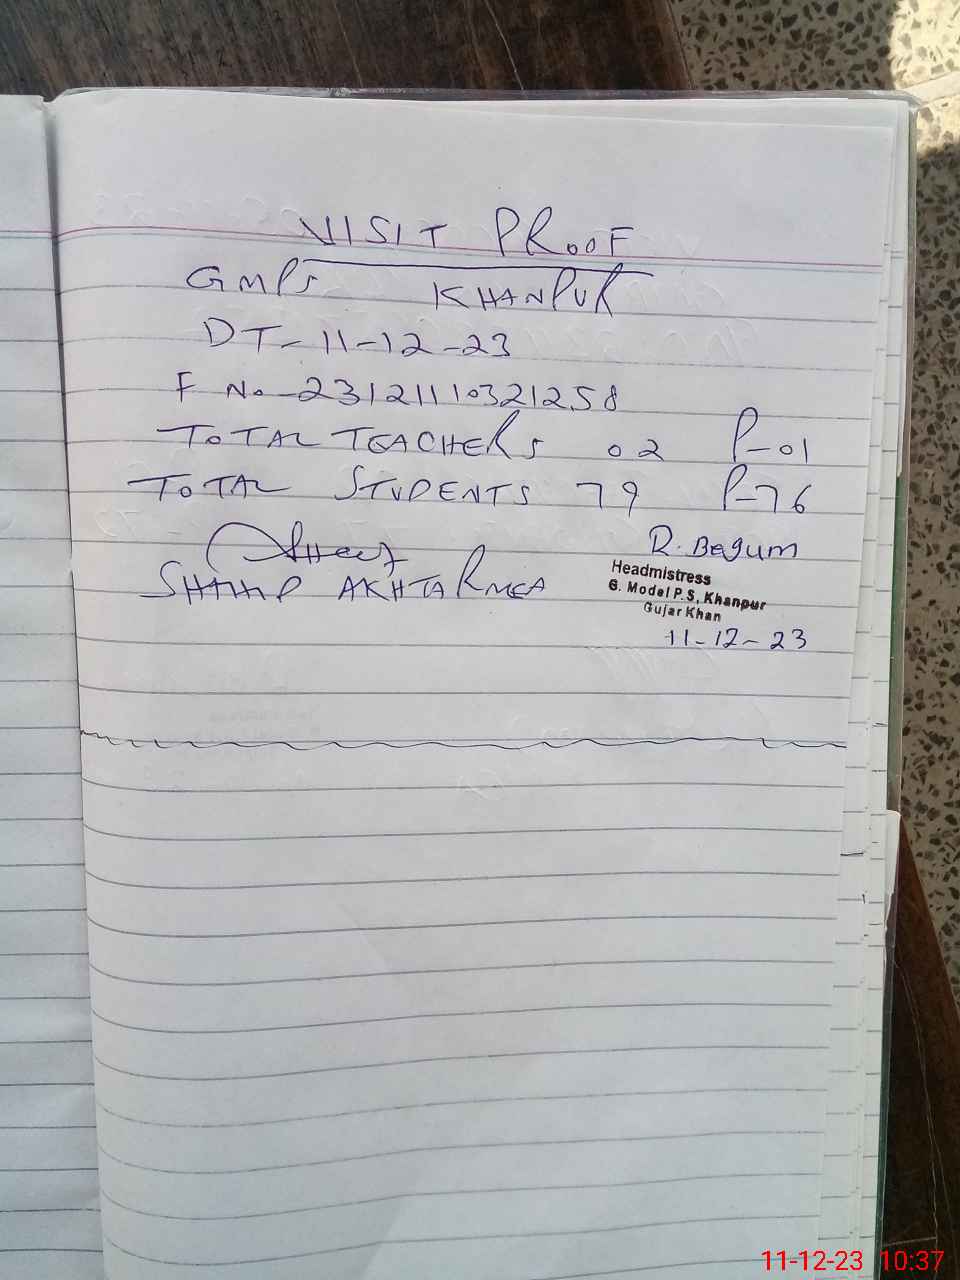 VISIT PROOF
GMPS KHANPUR
DT-11-12-23
F No-23121110321258
TOTAL TEACHERS 02 P-01
TOTAL STUDENTS 79 P-76
R. Begum
AKHTAR MEA
Headmistress
G. Model P.S, Khanpur
Gujar Khan
11-12-23
11-12-23 10:37